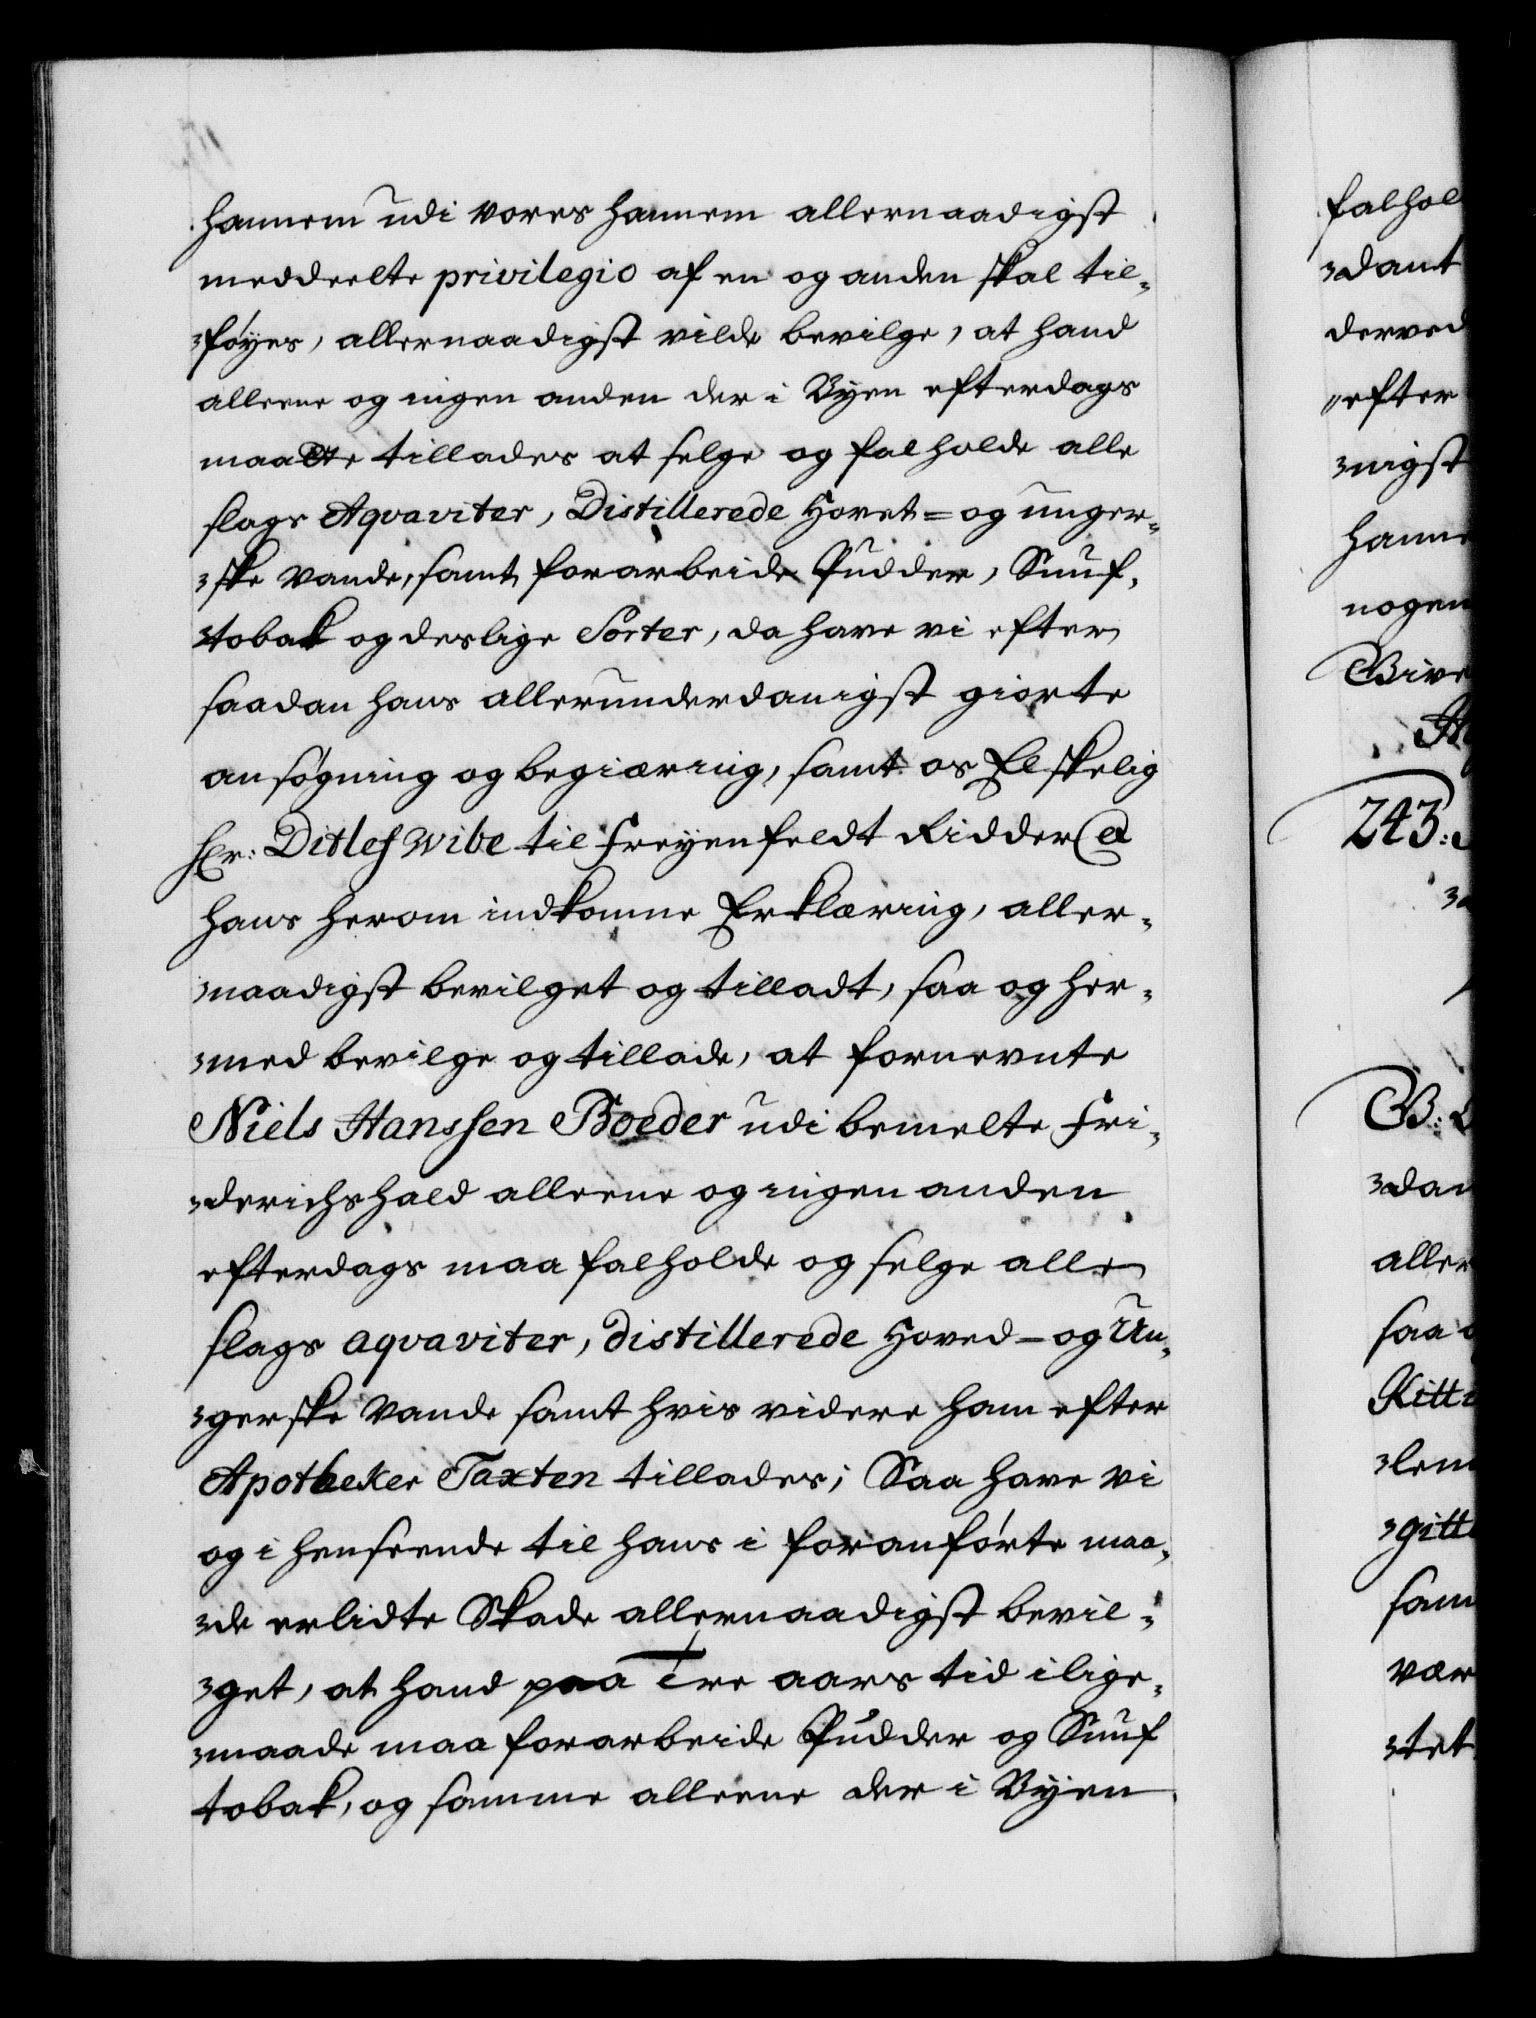 hannem udi vores hannem allernaadigst
meddeelte privilegio af en og anden skal til-
føyes, allernaadigst vilde bevilge, at hand
alleene og ingen anden der i Byen efterdags
maatte tillades at selge og falholde alle
slags Aqvaviter, Distillerede Hovet- og unger-
ske Vande, samt forarbeide Pudder, Snuf-
tobak og deslige Sorter, da have vi efter
saadan hans allerunderdanigst giorte
ansøgning og begiæring, samt os Elskelig
Hr: Ditlef Wibe til Freyenfeldt Ridder &
hans herom indkomne Erklæring, aller-
naadigst bevilget og tilladt, saa og her-
med bevilge og tillade, at fornevnte
Niels Hanssen Boeder udi bemelte Fri-
derichshald alleene og ingen anden
efterdags maa falholde og selge alle
slags aqvaviter, distillerede Hoved- og Un-
gerske Vande samt hvis videre ham efter
Apotheker Taxten tillades; Saa have vi
og i henseende til hans i foranførte maa-
de erlidte Skade allernaadigst bevil-
get, at hand paa Tre aars tid ilige-
maade maa forarbeide Pudder og Snuf
tobak, og samme alleene der i Byen
falhol
dant
derved
efter
nigst
hanne
nogen
Give
243:
B:
dan
aller
saa
Kitt
len
gitt
sam
vær
tet